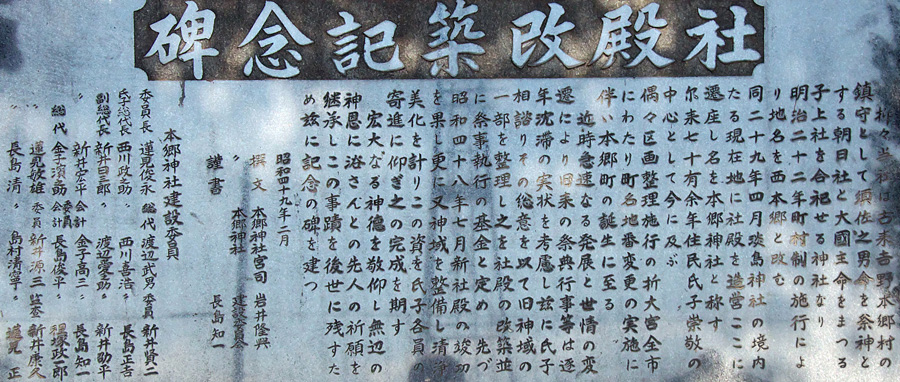 社殿改築記念碑
は古来吉野本郷村の
鎮守として須佐之男命を祭神と
する朝日社と大國主命をまつる
子上社を合祀せる神社なり
明治二十二年町村制の施行によ
り地名を西本郷と改む
同二十九年四月淡島神社の境内
たる現在地に社殿を造営ここに
遷座し名を本郷神社と称す
尓来七十有余年住民氏子崇敬の
中心として今に及ぶ
偶々区画整理施行の折大宮全市
にわたり町名地番変更の実施に
伴い本郷町の誕生に至る
近時急速なる発展と世情の変
遷により旧来の祭典行事等は逐
年沈滞の実状を考慮し茲に氏子
相諮りその総意を以て旧神域の
一部を整理し之を社殿の改築並
に祭事執行の基金と定め先づ
昭和四十八年七月新社殿の竣功
を果し更に又神域を整備し清浄
美化を計りこの資を氏子各員の
寄進に仰ぎ之の完成を期す
宏大なる神徳を敬仰し無辺の
神恩に浴さんとの先人の祈願を
継承しこの事蹟を後世に残すた
め茲に記念の碑を建つ
昭和四九年二月
撰文 本郷神社宮司 岩井隆興
謹書 本郷神社 建設委員 長島知一
本郷神社建設委員
委員長 蓮見俊永 総代 渡辺武男 委員 新井賢二
氏子総代長 西川政之助 〃 西川喜浩 〃 長島正吉
副総代長 新井白三郎 〃 渡辺愛之助 〃 新井勘平
〃 新井宏平 会計 金子高三 〃 長島知一
総代 金子濱助 会計委員 長島俊平 〃 程塚政一郎
〃 蓮見敏雄 委員 新井源三 監査 新井廣久
〃 長島清 〃 島村清寧 〃 蓮見正